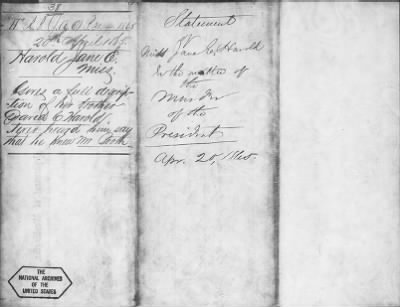 38
20th April 1865.
Harold Jane E.
Miss.
Gives a full descrip
tion of her brother
David C Harold.
Never heard him say
that he knew Mr Booth
Statement
of
Miss Jane E. Harold
In the matter of
the
Murder
of the
President
Apr. 20, 1865.
THE
NATIONAL ARCHIVES
OF THE
UNITED STATES